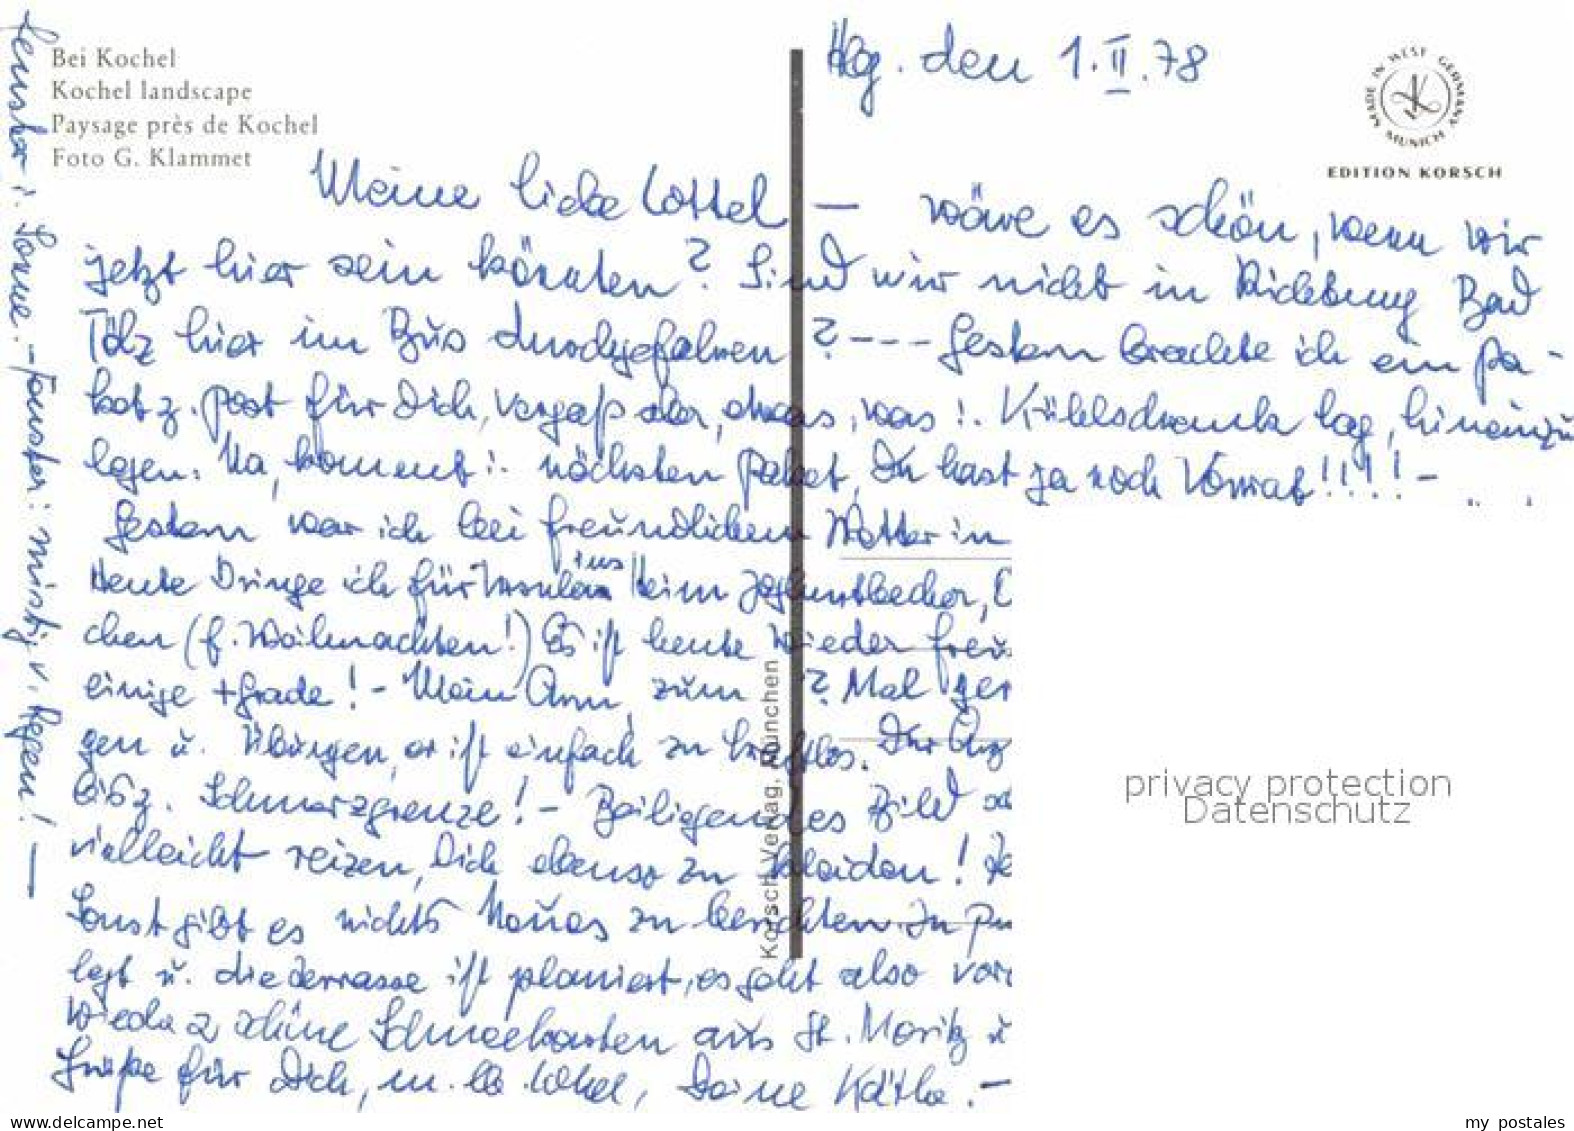 Bei Kochel
Kochel landscape
Paysage près de Kochel
Foto G. Klammet
Hbg. den 1.II.78
MADE IN WEST GERMANY MUNICH
EDITION KORSCH
Meine liebe Lottel – wäre es schön, wenn wir
jetzt hier sein könnten? Sind wir nicht in Richtung Bad
Tölz hier im Bus durchgefahren? --- Gestern brachte ich ein Pa-
ket z. Post für Dich, vergaß aber, etwas, was i. Kühlschrank lag, hineinzu
legen. Na, kommt i. nächsten Paket, Du hast ja noch Vorrat!!!! –
Gestern war ich bei freundlichem Wetter in
Heute bringe ich für ins Heim Joghurtbecher,
chen (f. Weihnachten!) Es ist heute wieder
einige + Grade! – Mein Arm, zum ? Mal
gen u. Übungen, er ist einfach zu kraftlos. Der
bis z. Schmerzgrenze! – Beiliegendes Bild
vielleicht reizen, Dich ebenso zu kleiden!
Sonst gibt es nichts Neues zu berichten. In
legt u. die Terrasse ist planiert, es geht also
Wieder 2 schöne Schneekarten aus St. Moritz
Grüße für Dich, m. lb. Lottel, Deine Käthe. –
Fenster: Sonne. – Fenster: mistig v. Regen! –
Korsch Verlag, München
privacy protection
Datenschutz
my-ebay.de
my postales